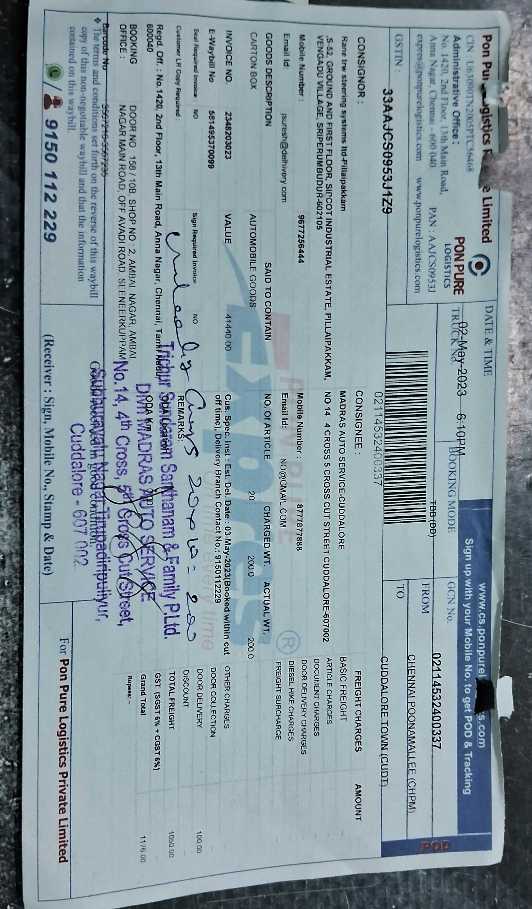 Pon Pure Logistics Private Limited
CIN U63090TN2005PTC56468
Administrative Office :
No. 1420, 2nd Floor, 13th Main Road,
Anna Nagar, Chennai - 600 040
PAN : AAJCS0953J
express@ponpurelogistics.com www.ponpurelogistics.com
PON PURE
LOGISTICS
GSTIN
33AAJCS0953J1Z9
www.cs.ponpurelogistics.com
Sign up with your Mobile No. to get POD & Tracking
DATE & TIME
02-May-2023 6:10PM
TRUCK
BOOKING MODE
GCN No.
02114532400337
FROM
CHENNAI POONAMALLEE (CHPM)
TO
CUDDALORE TOWN (CUDT)
POD
02114532400337
CONSIGNOR :
Rane trw steering systems ltd-Pillaipakkam
,S-52, GROUND AND FIRST FLOOR, SIPCOT INDUSTRIAL ESTATE, PILLAIPAKKAM,
VENGADU VILLAGE, SRIPERUMBUDUR-602105
Mobile Number : 9677256444
Email Id
CONSIGNEE :
MADRAS AUTO SERVICE-CUDDALORE
NO.14 4 CROSS 5 CROSS CUT STREET,CUDDALORE-607002
Mobile Number : 8777877888
Email Id: NO@GMAIL.COM
GOODS DESCRIPTION SAID TO CONTAIN NO. OF ARTICLE CHARGED WT. ACTUAL WT.
CARTON BOX AUTOMOBILE GOODS 20 200.0 200.0
INVOICE NO. 2348203023 VALUE 41440.00
E-Waybill No 561495370099
Cus. Spec. Inst : Est. Del. Date : 03-May-2023(Booked within cut
off time), Delivery Branch Contact No.: 9150112229
Seal Required Invoice NO Sign Required Invoice NO
REMARKS:
Customer LR Copy Required :
Regd. Off. : No 1420, 2nd Floor, 13th Main Road, Anna Nagar, Chennai, Tamil Nadu
600040
BOOKING OFFICE : DOOR NO 158 / 10B, SHOP NO : 2, AMBAL NAGAR, AMBAL
NAGAR MAIN ROAD, OFF AVADI ROAD, SENNEERKUPPAM
FREIGHT CHARGES AMOUNT
BASIC FREIGHT
ARTICLE CHARGES
DOCUMENT CHARGES
DOOR DELIVERY CHARGES
DIESEL HIKE CHARGES
FREIGHT SURCHARGE
OTHER CHARGES
DOOR COLLECTION
DOOR DELIVERY 100.00
DISCOUNT
TOTAL FREIGHT 1050.00
GST (SGST 6% + CGST 6%)
Grand Total 1176.00
Rupees :-
Trichur Sundaram Santhanam & Family P.Ltd.
DIV: MADRAS AUTO SERVICE
No.14, 4th Cross, 5th Cross Cut Street,
Cuddalore - 607 002
The terms and conditions set forth on the reverse of this waybill
copy of this non-negotiable waybill and that the information
contained on this waybill.
9150 112 229
(Receiver : Sign, Mobile No., Stamp & Date)
For Pon Pure Logistics Private Limited